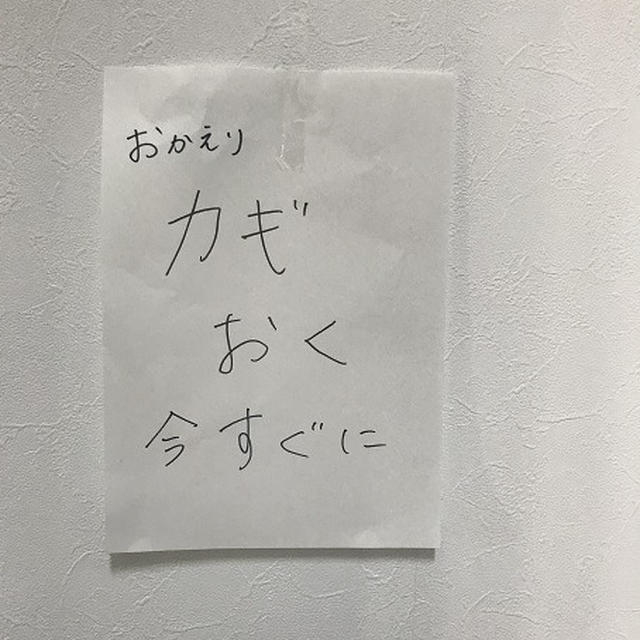 おかえり
カギ
おく
今すぐに